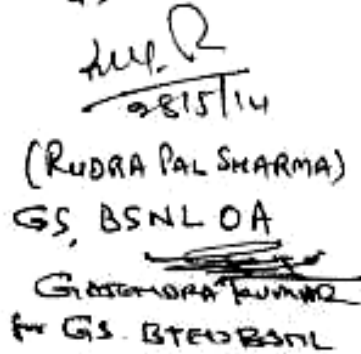 28/5/14
(RUDRA PAL SHARMA)
GS, BSNL OA
KUMAR
for GS. BTEU BSNL